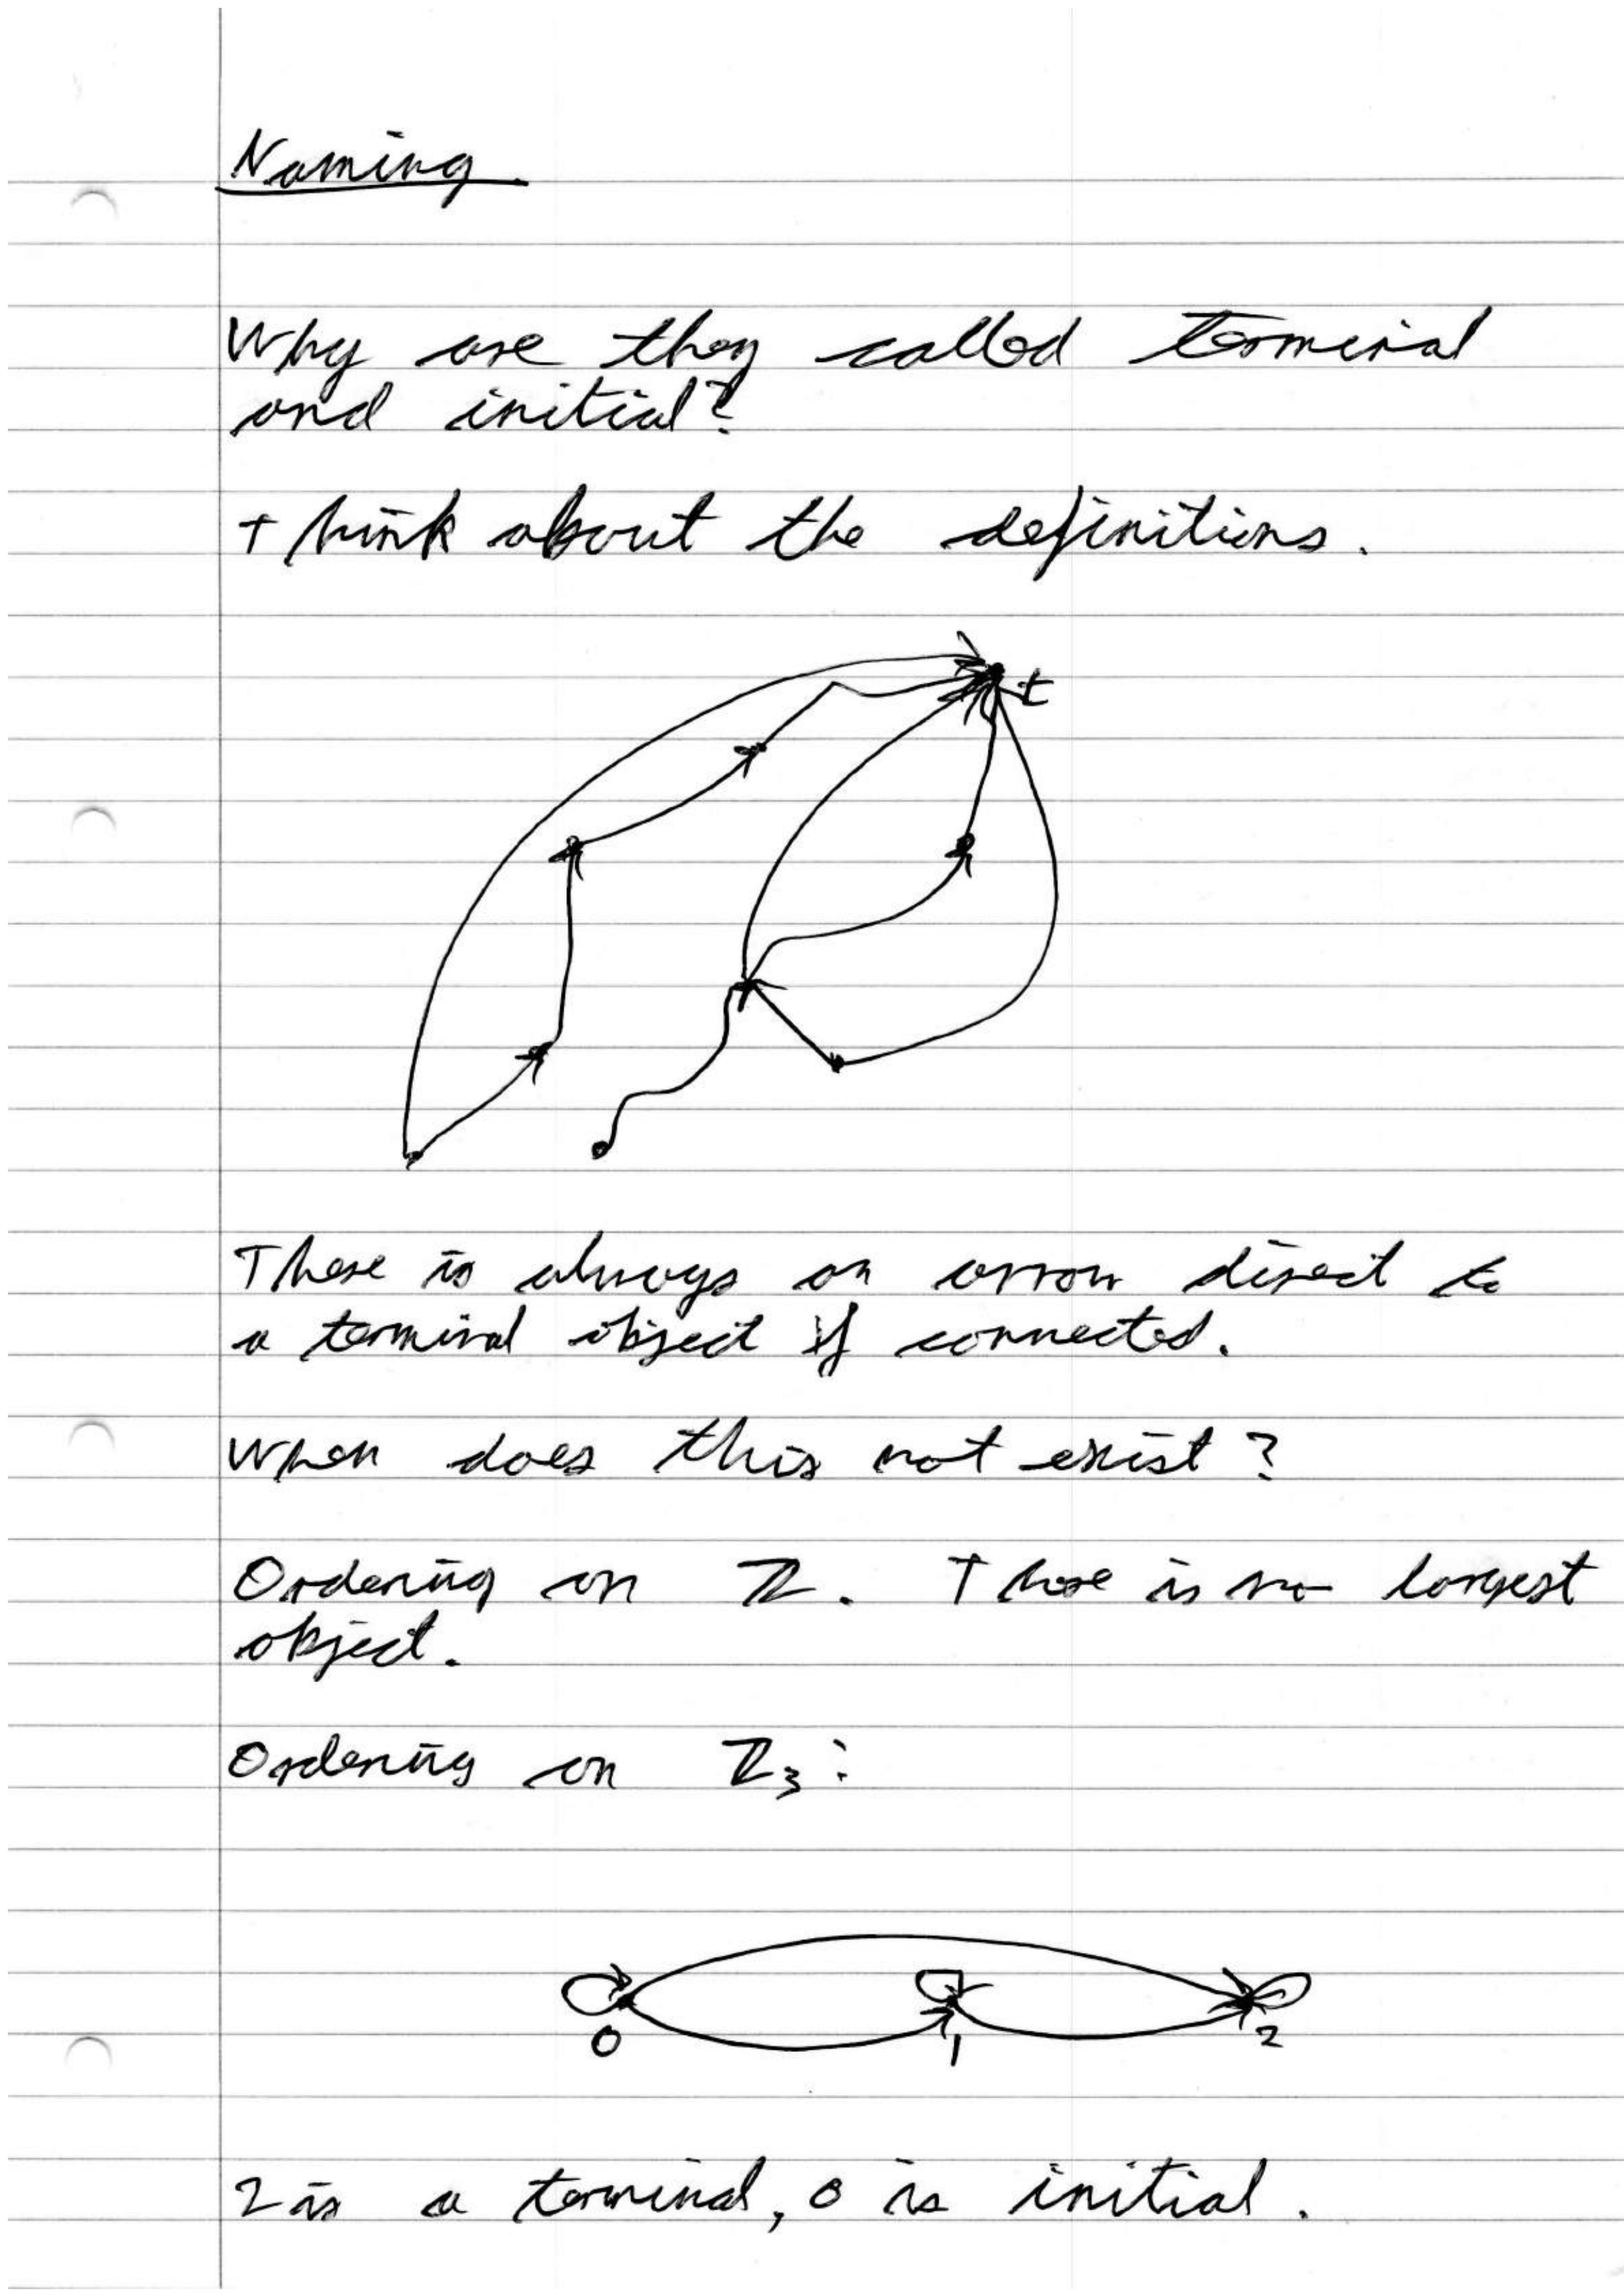 Naming
Why are they called terminal
and initial?
Think about the definitions.
t
There is always an arrow direct to
a terminal object if connected.
When does this not exist?
Ordering on ℤ. There is no largest
object.
Ordering on ℤ₃:
0 1 2
2 is a terminal, 0 is initial.